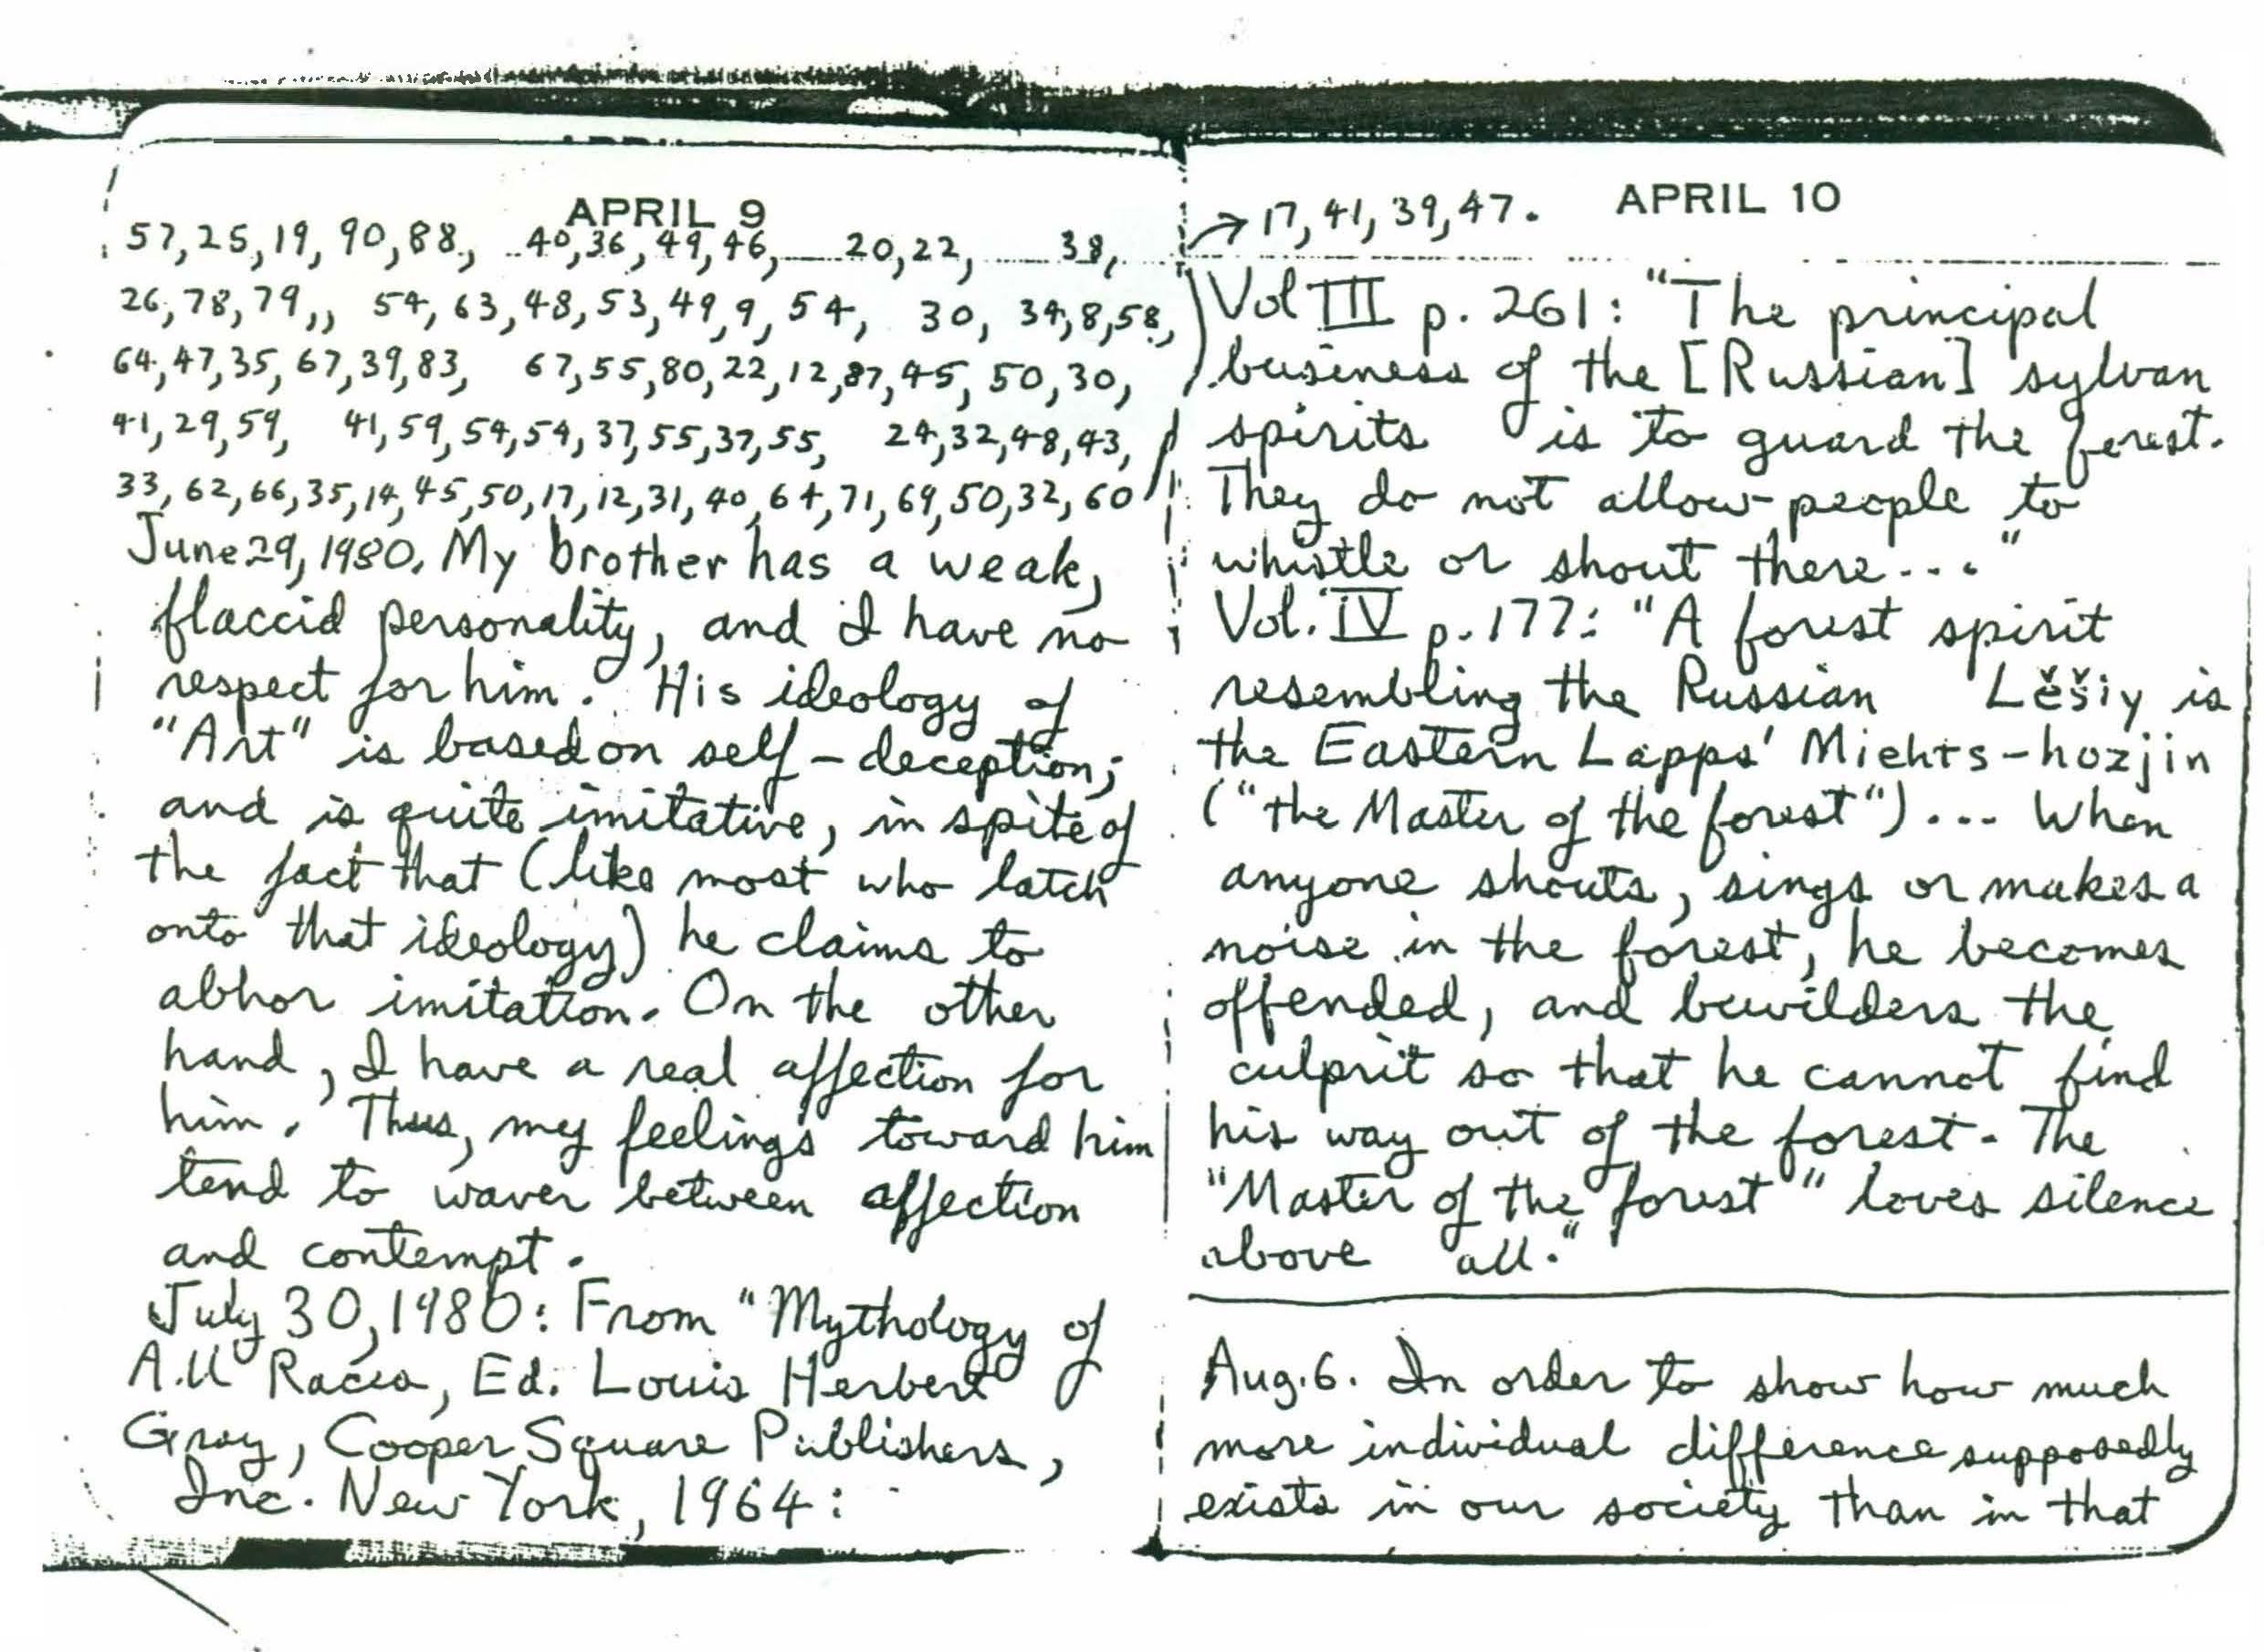 APRIL 9
57,25,19, 90,88, 40,36,49,46, 20,22, 38,
26,78,79,, 54,63,48,53,49,9,54, 30, 34,8,58,
64,47,35,67,39,83, 67,55,80,22,12,87,45,50,30,
41,29,59, 41,59,54,54,37,55,37,55, 24,32,48,43,
33,62,66,35,14,45,50,17,12,31,40,64,71,69,50,32,60
June 29, 1980. My brother has a weak,
flaccid personality, and I have no
respect for him. His ideology of
"Art" is based on self-deception;
and is quite imitative, in spite of
the fact that (like most who latch
onto that ideology) he claims to
abhor imitation. On the other
hand, I have a real affection for
him. Thus, my feelings toward him
tend to waver between affection
and contempt.
July 30, 1980: From "Mythology of
All Races, Ed. Louis Herbert
Gray, Cooper Square Publishers,
Inc. New York, 1964:
APRIL 10
→17,41,39,47.
Vol III p. 261: "The principal
business of the [Russian] sylvan
spirits is to guard the forest.
They do not allow people to
whistle or shout there..."
Vol. IV p. 177: "A forest spirit
resembling the Russian Lěšiy is
the Eastern Lapps' Miehts-hozjin
("the Master of the forest")... When
anyone shouts, sings or makes a
noise in the forest, he becomes
offended, and bewilders the
culprit so that he cannot find
his way out of the forest. The
"Master of the forest" loves silence
above all."
Aug. 6. In order to show how much
more individual difference supposedly
exists in our society than in that